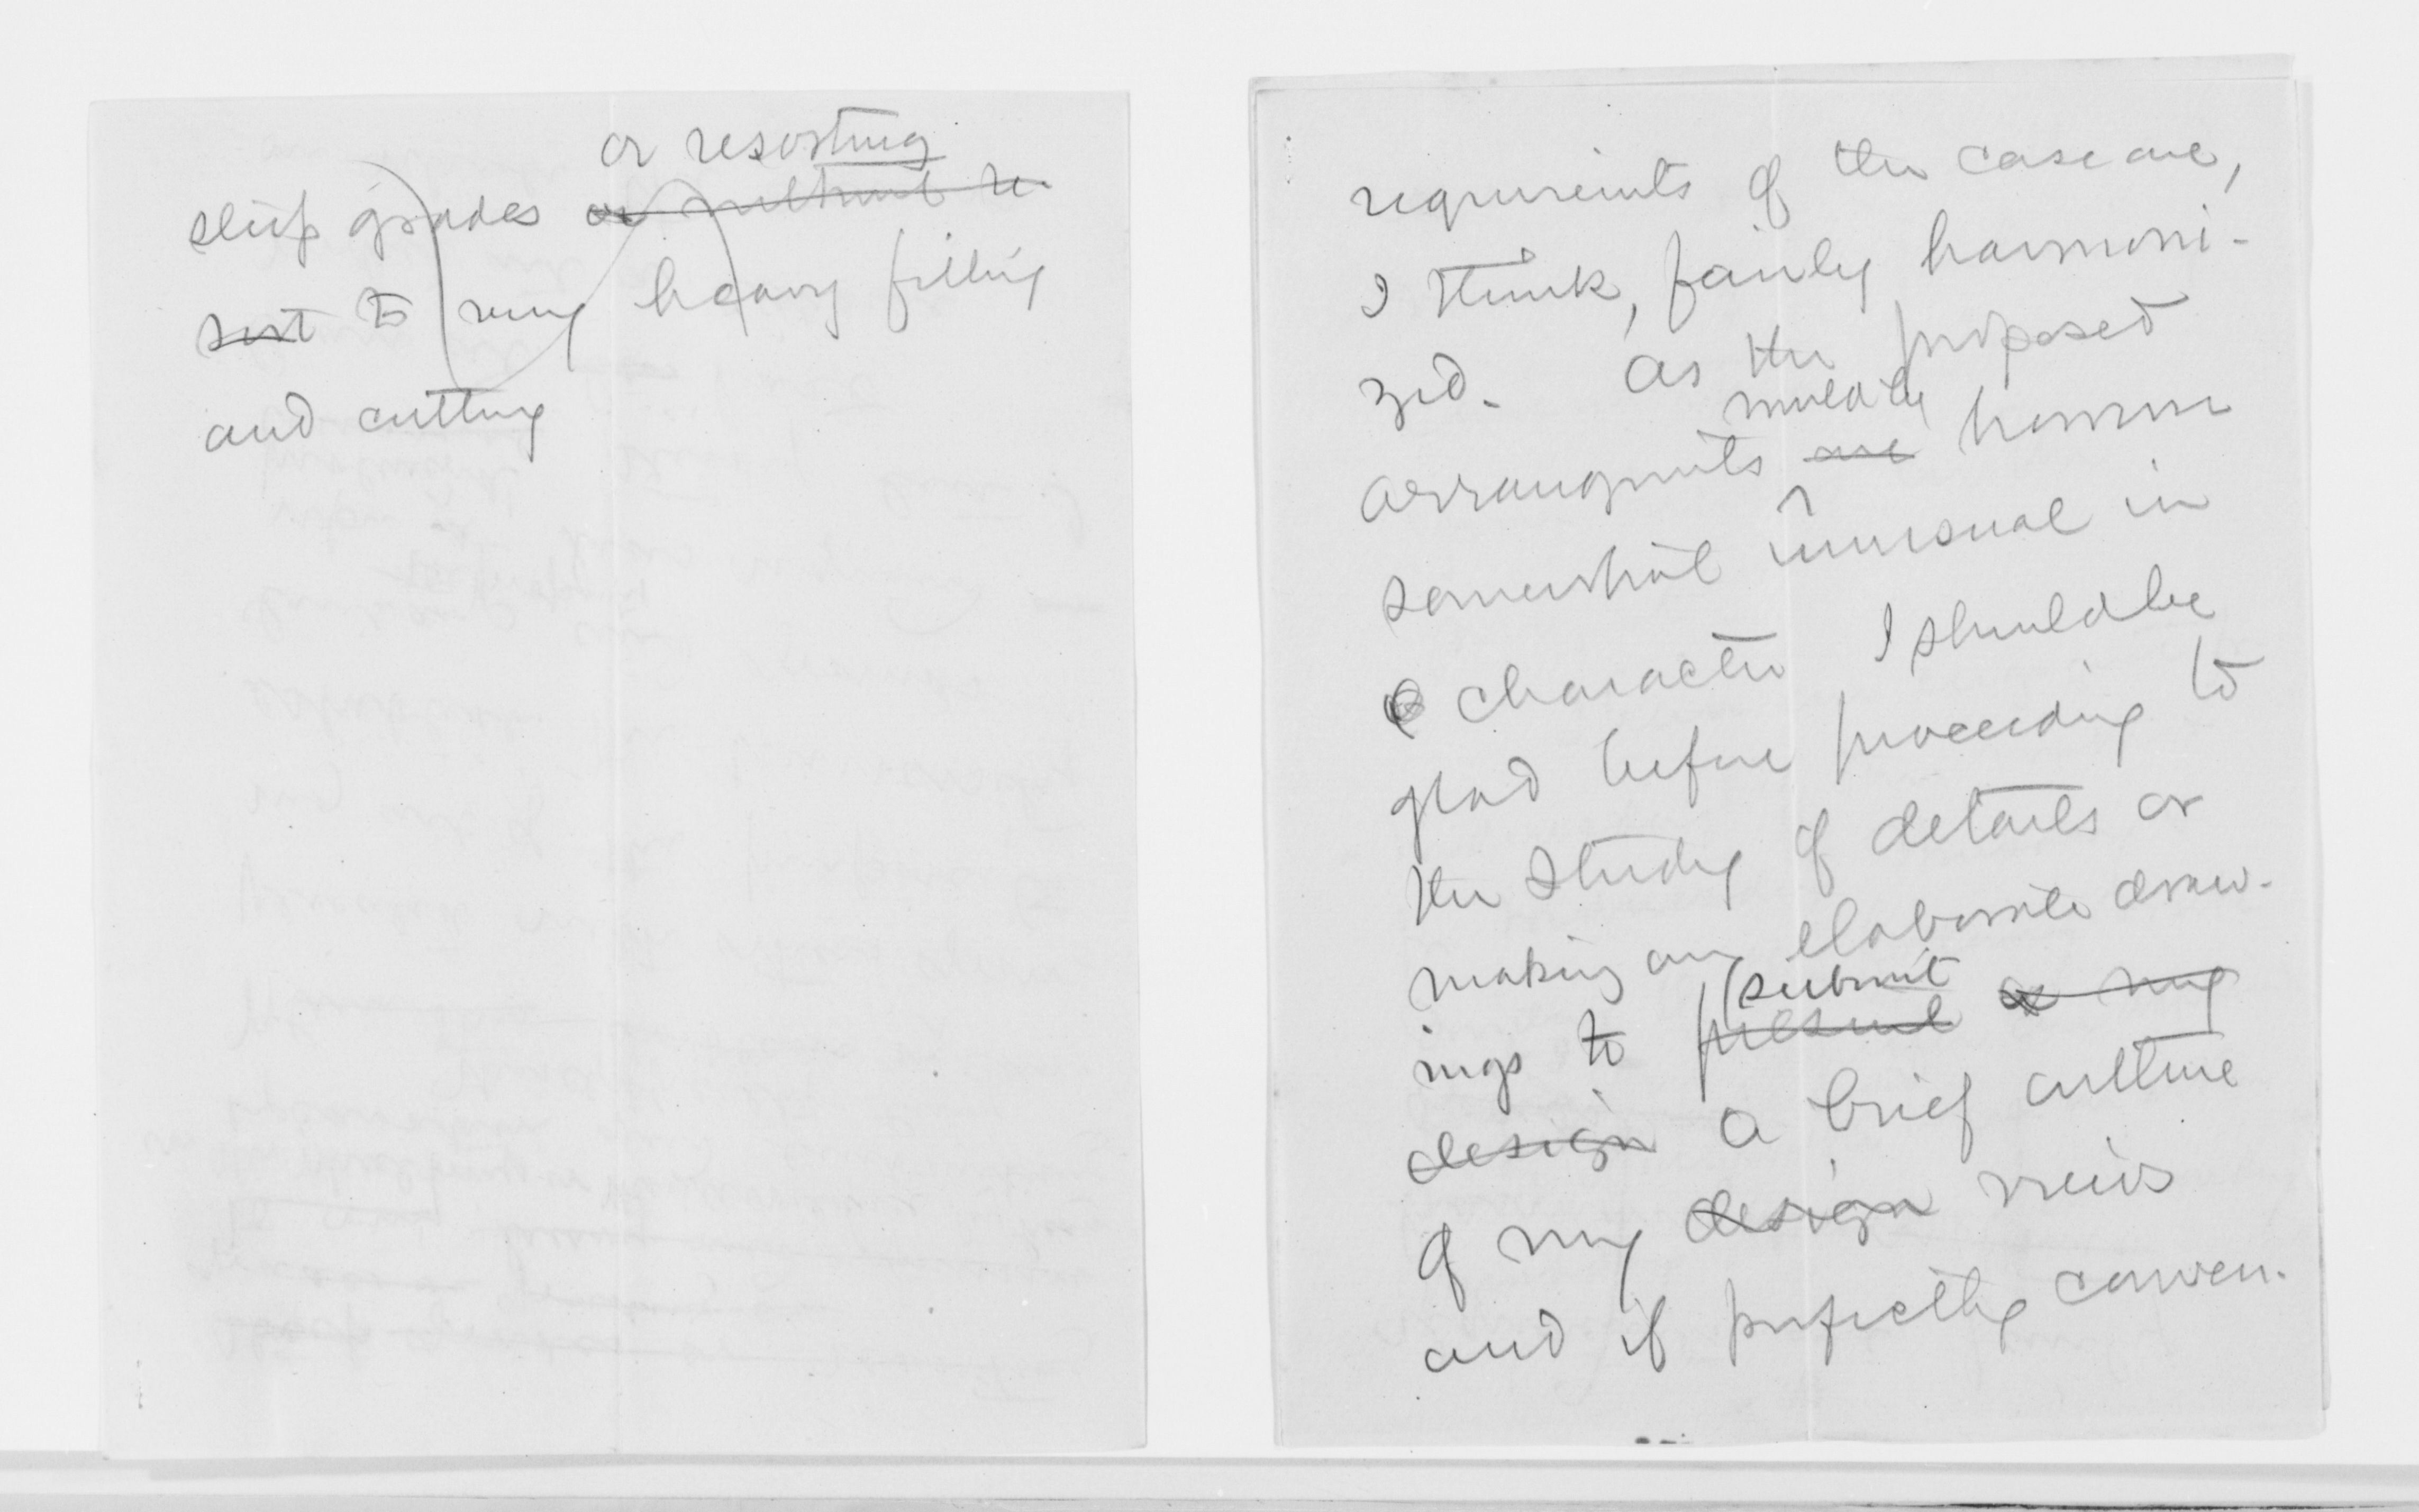 or resorting
steep grades or without re-
sort to very heavy filling
and cutting
requirements of the case are,
I think, fairly harmoni-
zed. As the proposed
would be
arrangments are however
somewhat unusual in
character I should be
glad before proceeding to
the study of details or
making any elaborate draw-
submit
ings to present a my
design a brief outline
of my design views
and if perfectly conven-